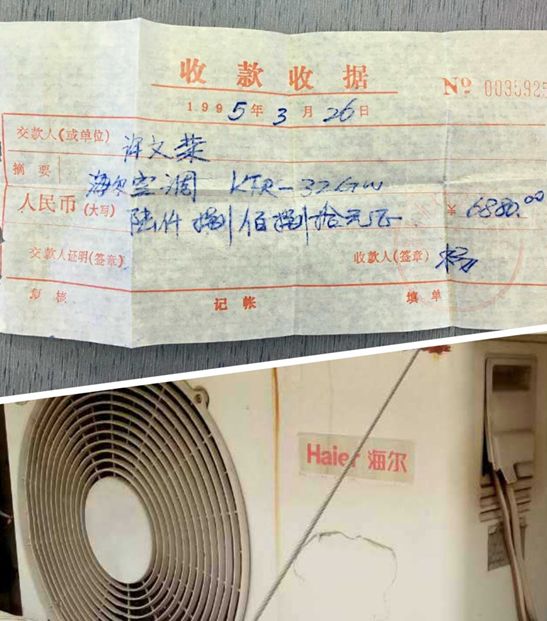 收款收据
No 0035925
1995年3月26日
交款人(或单位) 许文荣
摘要 海尔空调 KFR-32GW
人民币(大写) 陆仟捌佰捌拾元正 ¥6880.00
交款人证明(签章) 收款人(签章) 杨
复核 记帐 填单
Haier 海尔